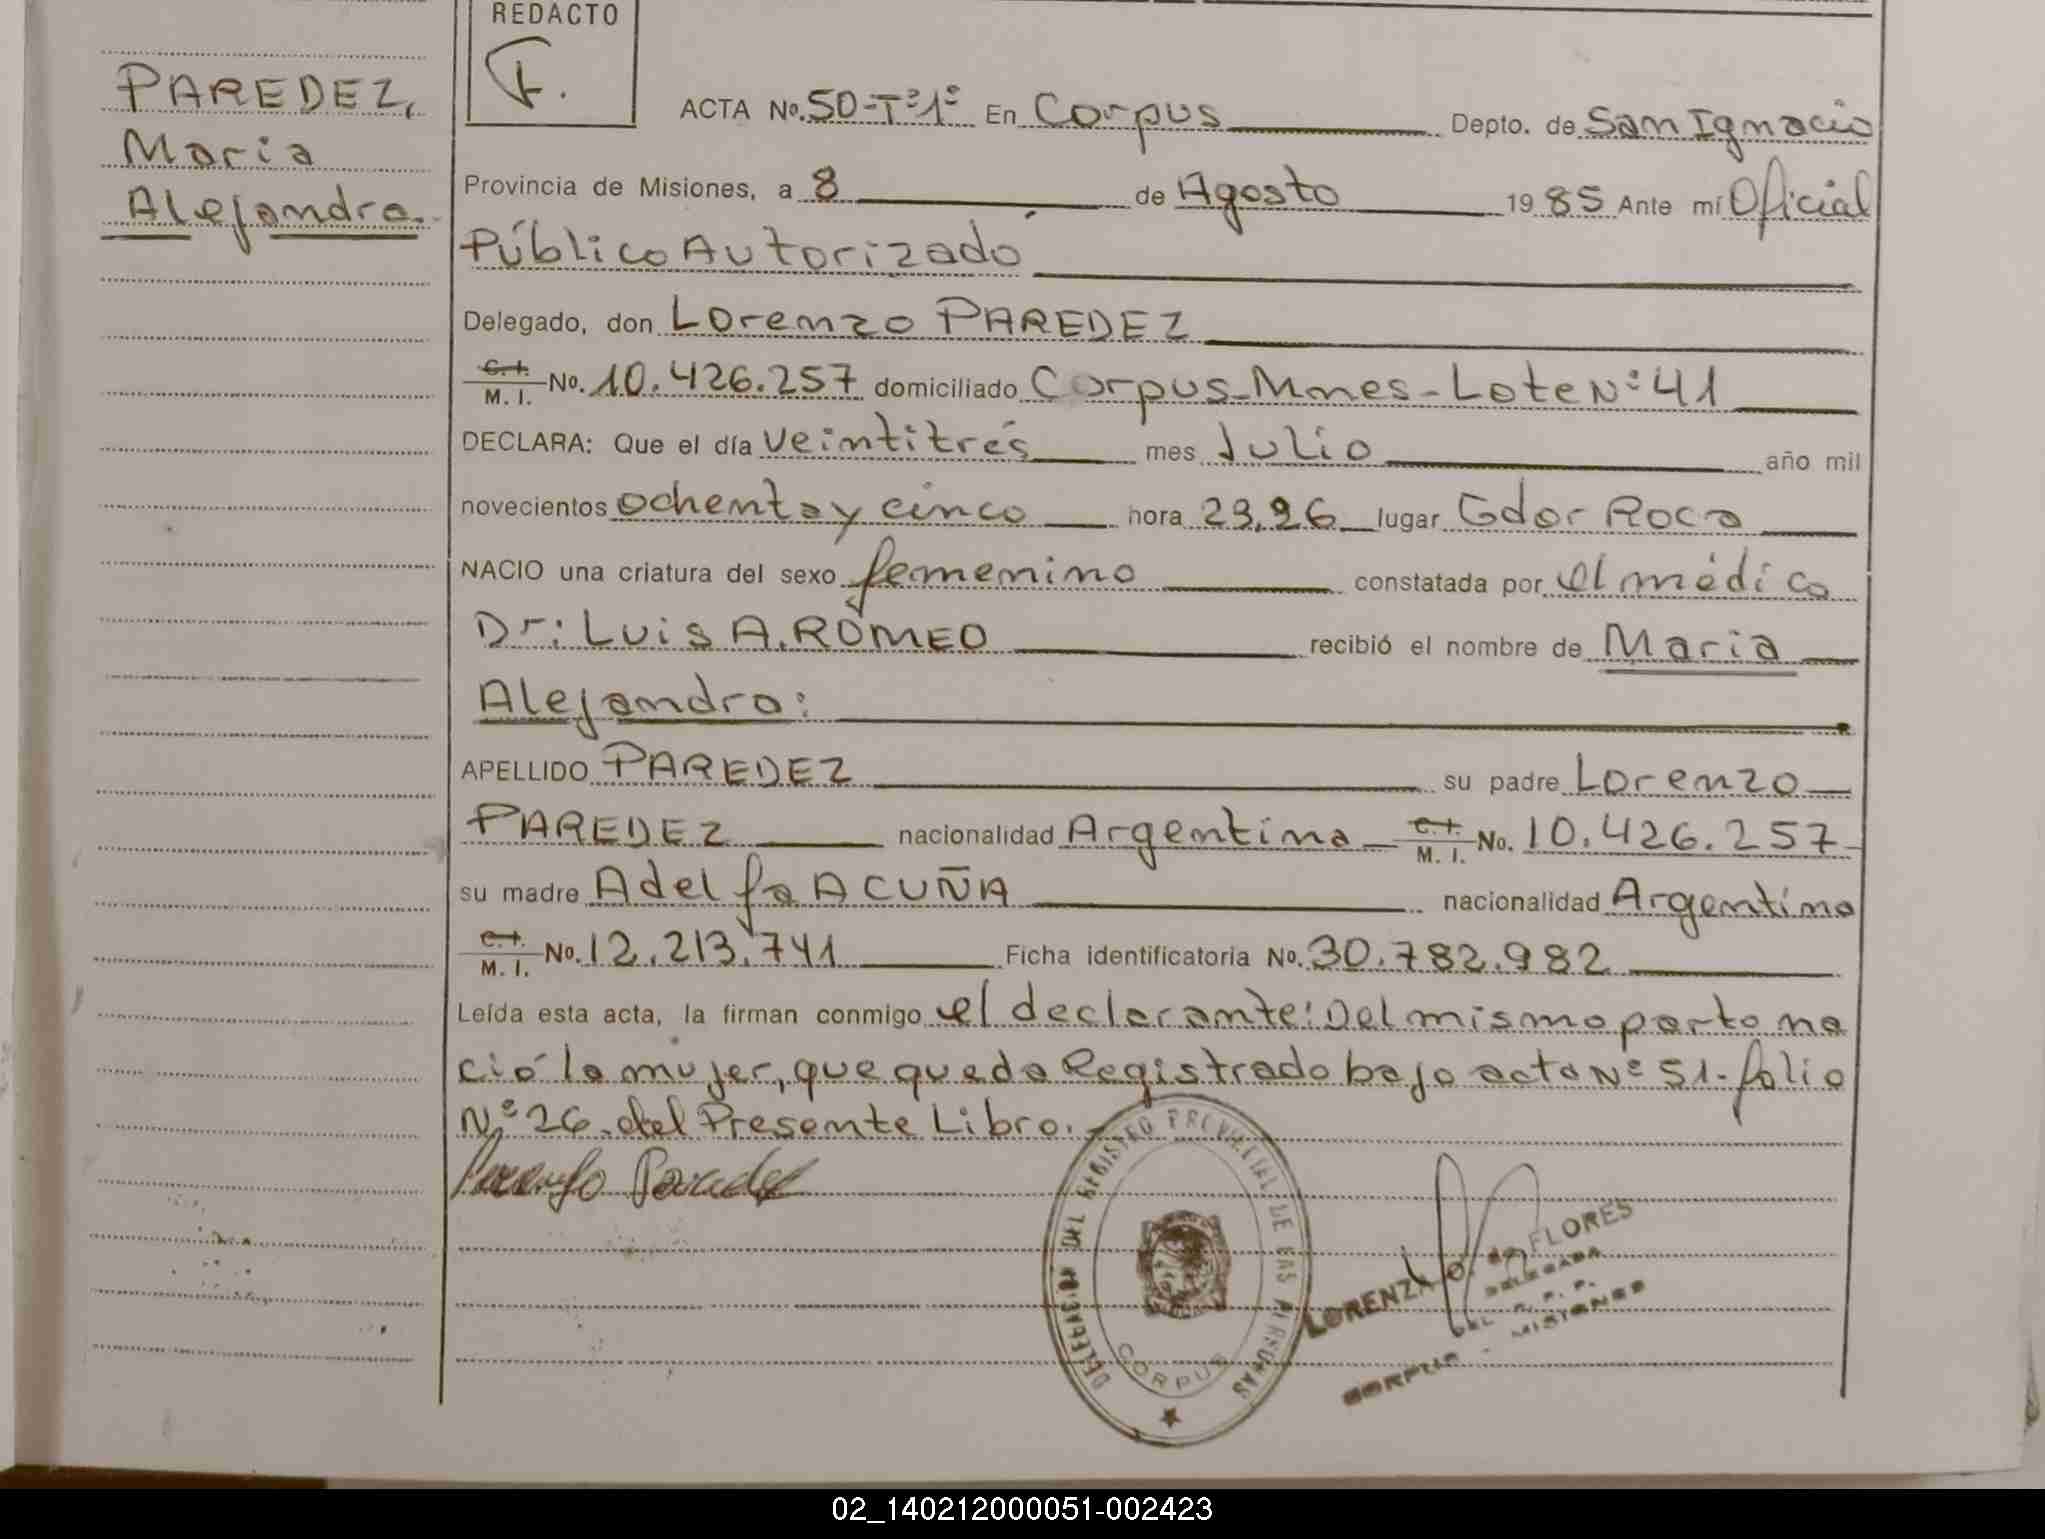 REDACTO
PAREDEZ,
Maria
Alejandra.
ACTA No. 50-Tº1º En Corpus Depto. de San Ignacio
Provincia de Misiones, a 8 de Agosto 1985 Ante mí Oficial
Público Autorizado
Delegado, don Lorenzo PAREDEZ
C.I. M.I. No. 10.426.257 domiciliado Corpus-Mnes-Lote Nº 41
DECLARA: Que el día veintitrés mes Julio año mil
novecientos ochenta y cinco hora 23,26 lugar Gdor Roca
NACIO una criatura del sexo femenino constatada por el médico
Dr: Luis A. ROMEO recibió el nombre de Maria
Alejandra:
APELLIDO PAREDEZ su padre Lorenzo
PAREDEZ nacionalidad Argentina C.I. M.I. No. 10.426.257
su madre Adelfa ACUÑA nacionalidad Argentina
C.I. M.I. No. 12.213.741 Ficha identificatoria No. 30.782.982
Leída esta acta, la firman conmigo el declarante: Del mismo parto na
ció la mujer, que queda Registrado bajo acta Nº 51-folio
Nº 26 del Presente Libro.
Lorenzo Paredez
DELEGACION DEL REGISTRO PROVINCIAL DE LAS PERSONAS
CORPUS
LORENZA O. de FLORES
DELEGADA
DEL R. P. P.
CORPUS - MISIONES
02_140212000051-002423